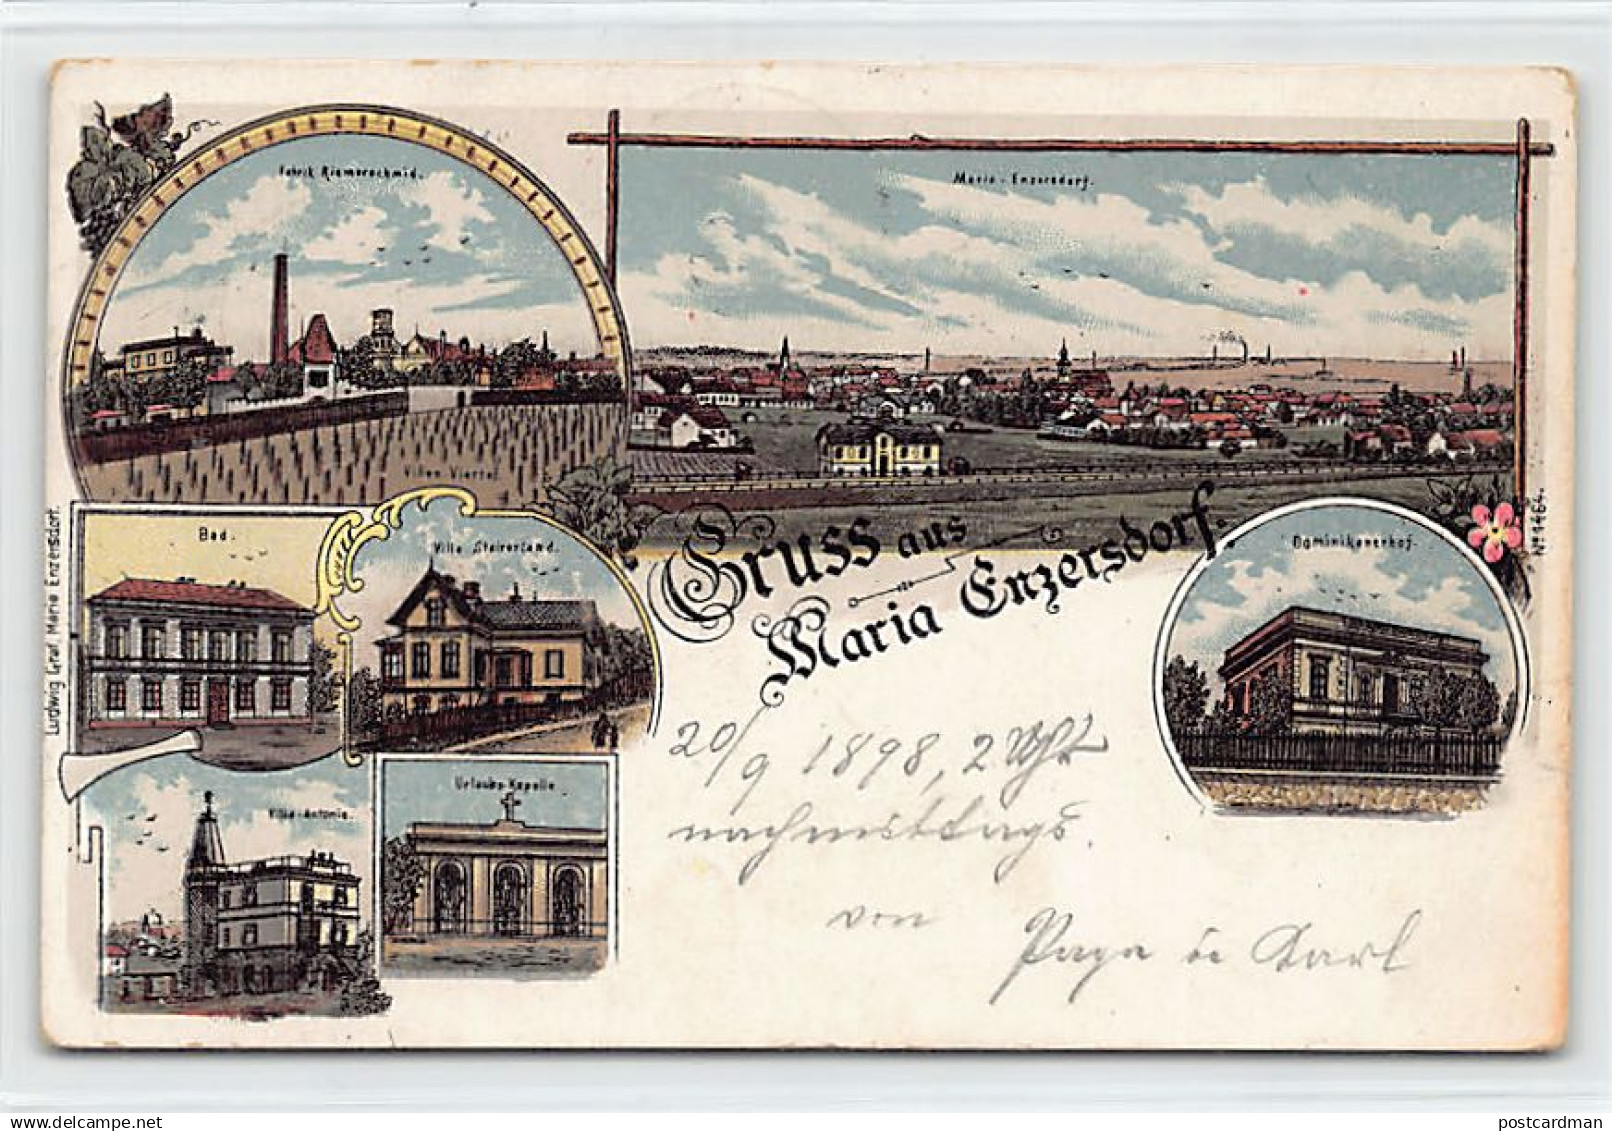 Fabrik Riemerschmid.
Villen Viertel
Maria-Enzersdorf.
Gruss aus
Maria Enzersdorf.
Bad.
Villa Steirerland.
Dominikanerhof.
Villa-Antonia.
Urlaubs-Kapelle
Ludwig Graf, Maria Enzersdorf.
Nº 1464.
20/9 1898, 2 Uhr
nachmittags.
von
Papa & Karl
postcardman